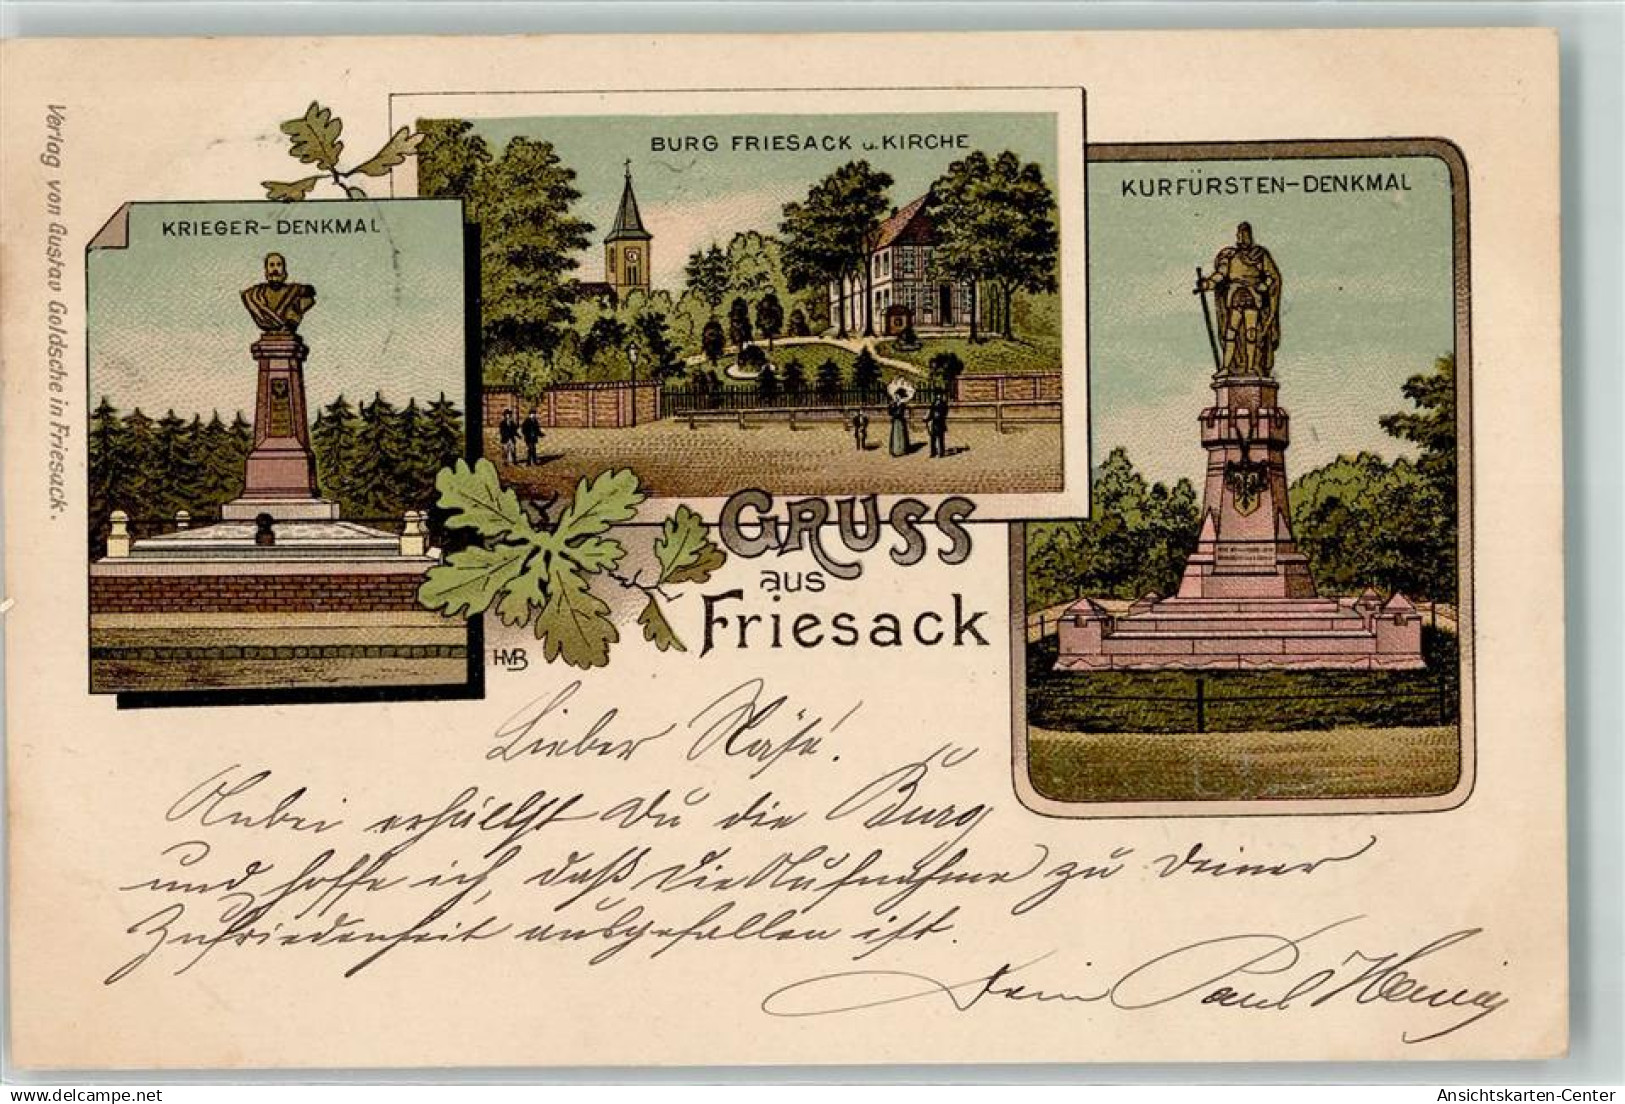 Verlag von Gustav Goldsche in Friesack.
KRIEGER-DENKMAL
BURG FRIESACK u. KIRCHE
KURFÜRSTEN-DENKMAL
GRUSS
aus
Friesack
HMB
Lieber
Anbei erhältst Du die Burg
und hoffe ich, daß die Aufnahme zu Deiner
Zufriedenheit ausgefallen ist.
Dein Paul
Ansichtskarten-Center